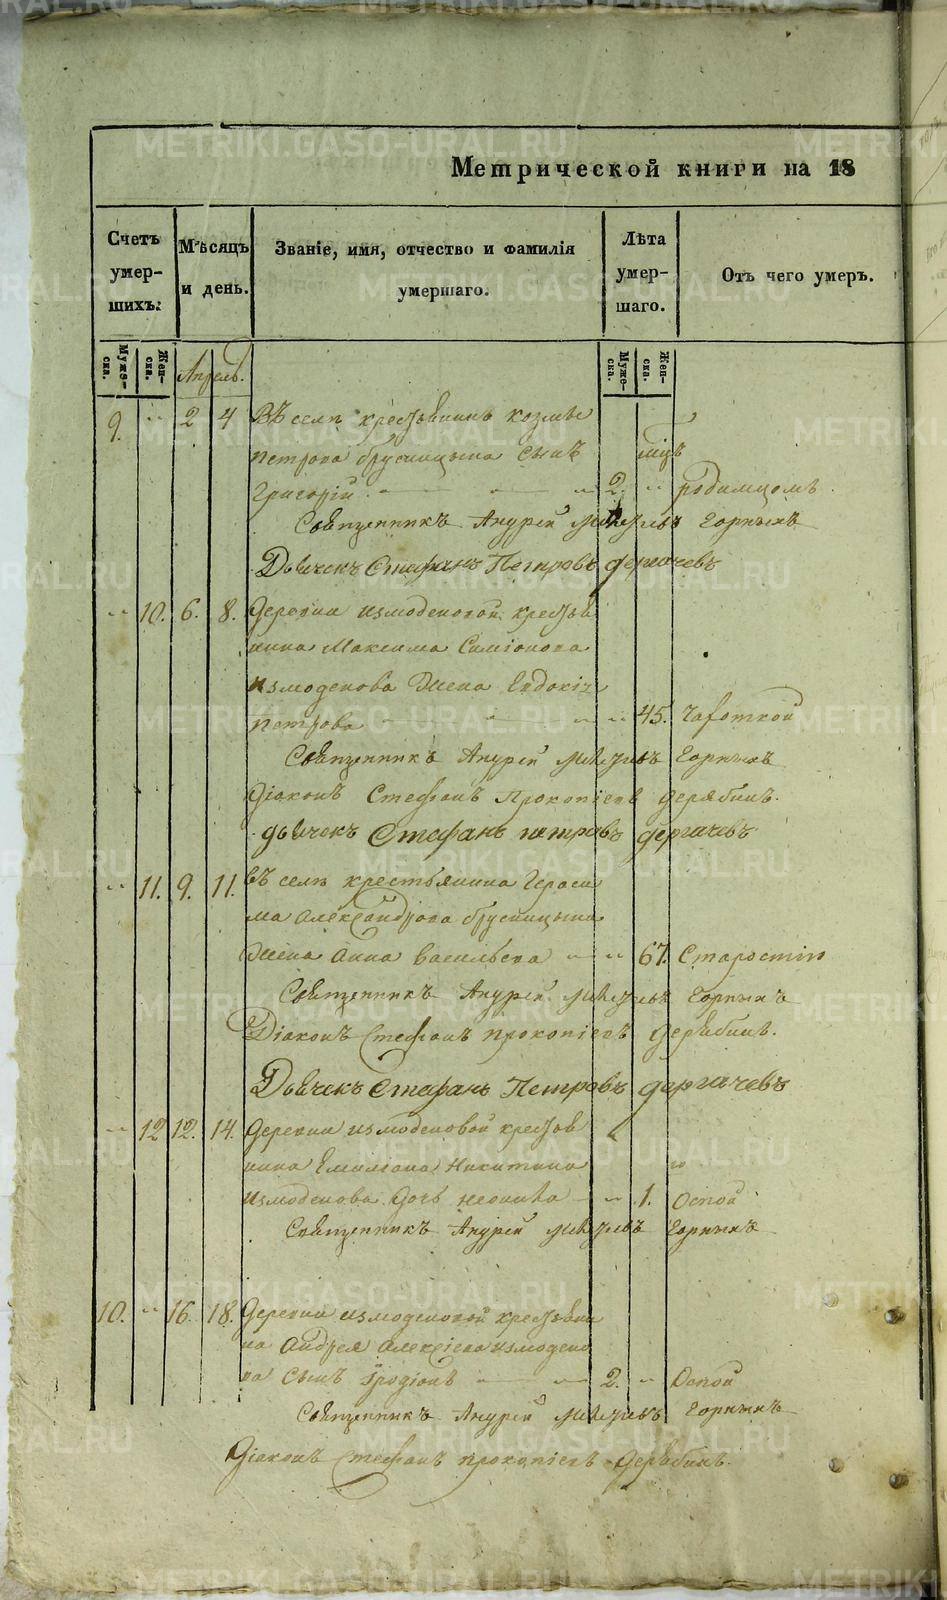 Метрической книги на 18
Счетъ умер- шихъ:
Мѣсяцъ и день.
Званіе, имя, отчество и фамилія умершаго.
Лѣта умер- шаго.
Отъ чего умеръ.
Муже- ска. Жен- ска. Апрель. Муже- ска. Жен- ска.
9. 2 4 Въ селѣ крестьянина Козмы
Петрова Брусницына сынъ
Григорій 2. родимцомъ.
Священникъ Андрей Горныхъ
Дьячекъ Стефанъ Петровъ Дергачевъ
10. 6. 8. Деревни Измоденовой крестья
нина Максима Симіонова
Измоденова жена Евдокія
Петрова 45. Чахоткой
Священникъ Андрей Горныхъ
Діаконъ Стефанъ Прокопіевъ Дерябинъ.
Дьячекъ Стефанъ Петровъ Дергачевъ
11. 9. 11. въ селѣ крестьянина Гераси
ма Александрова Брусницына
жена Анна Васильева 67. Старостію
Священникъ Андрей Горныхъ
Діаконъ Стефанъ Прокопіевъ Дерябинъ.
Дьячекъ Стефанъ Петровъ Дергачевъ
12 12. 14. Деревни Измоденовой крестья
нина Емилiана Никитина
Измоденова дочь 1. Оспой
Священникъ Андрей Горныхъ
10. 16. 18. Деревни Измоденовой крестьяни
на Андрея Алексіева Измодено
ва сынъ Іродіонъ 2. Оспой
Священникъ Андрей Горныхъ
Діаконъ Стефанъ Прокопіевъ Дерябинъ.
METRIKI.GASO-URAL.RU